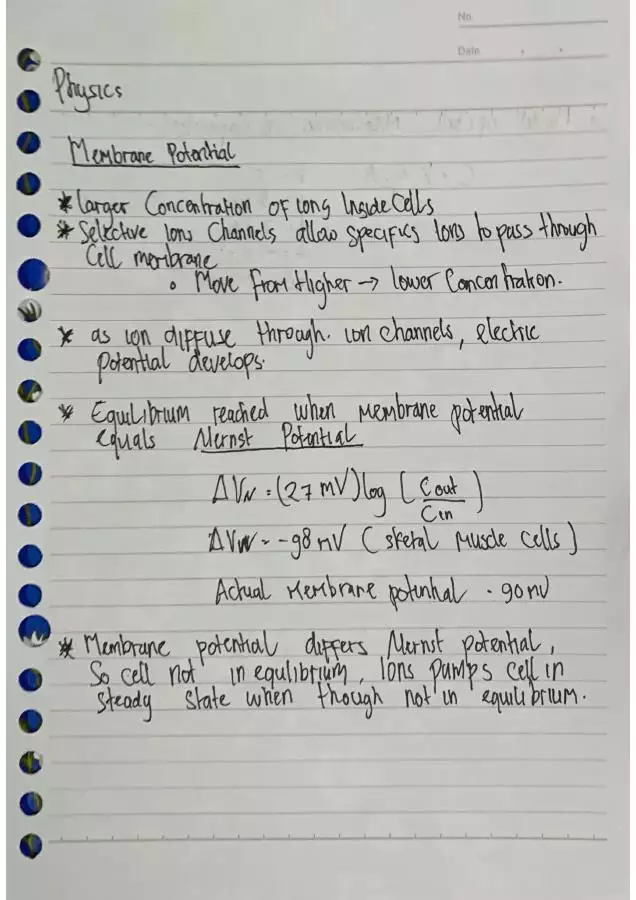 No.
Date
Physics
Membrane Potential
* Larger Concentration of Ions Inside Cells
* Selective Ions Channels allow specifics Ions to pass through
Cell membrane
• Move from Higher → lower Concentration.
* as ion diffuse through. ion channels, electric
potential develops.
* Equilibrium reached when Membrane potential
equals Nernst Potential
ΔVN = (27 mV) log (Cout/Cin)
ΔVN = -98 mV (Skletal Muscle Cells)
Actual Membrane potential - 90 mV
* Membrane potential differs Nernst potential,
So cell not in equlibrium, Ions pumps cell in
steady state when though not in equilibrium.